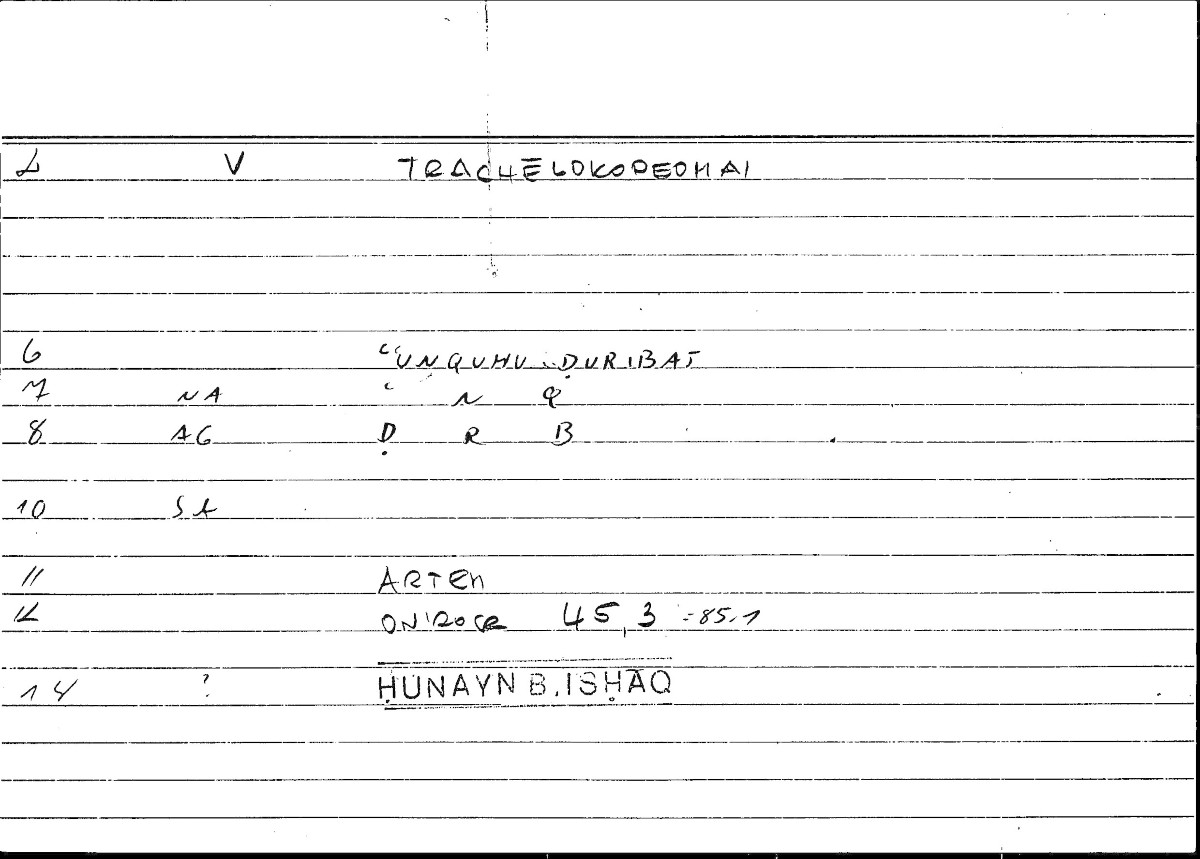 1 V TRACHĒLOKOPEOMAI
6 ʿUNQUHU ḌURIBAT
7 NA ʿ N Q
8 AG Ḍ R B
10 SA
11 ARTEM
12 ONIROCR 45,3 =85,1
14 ? ḤUNAYN B. ISḤĀQ